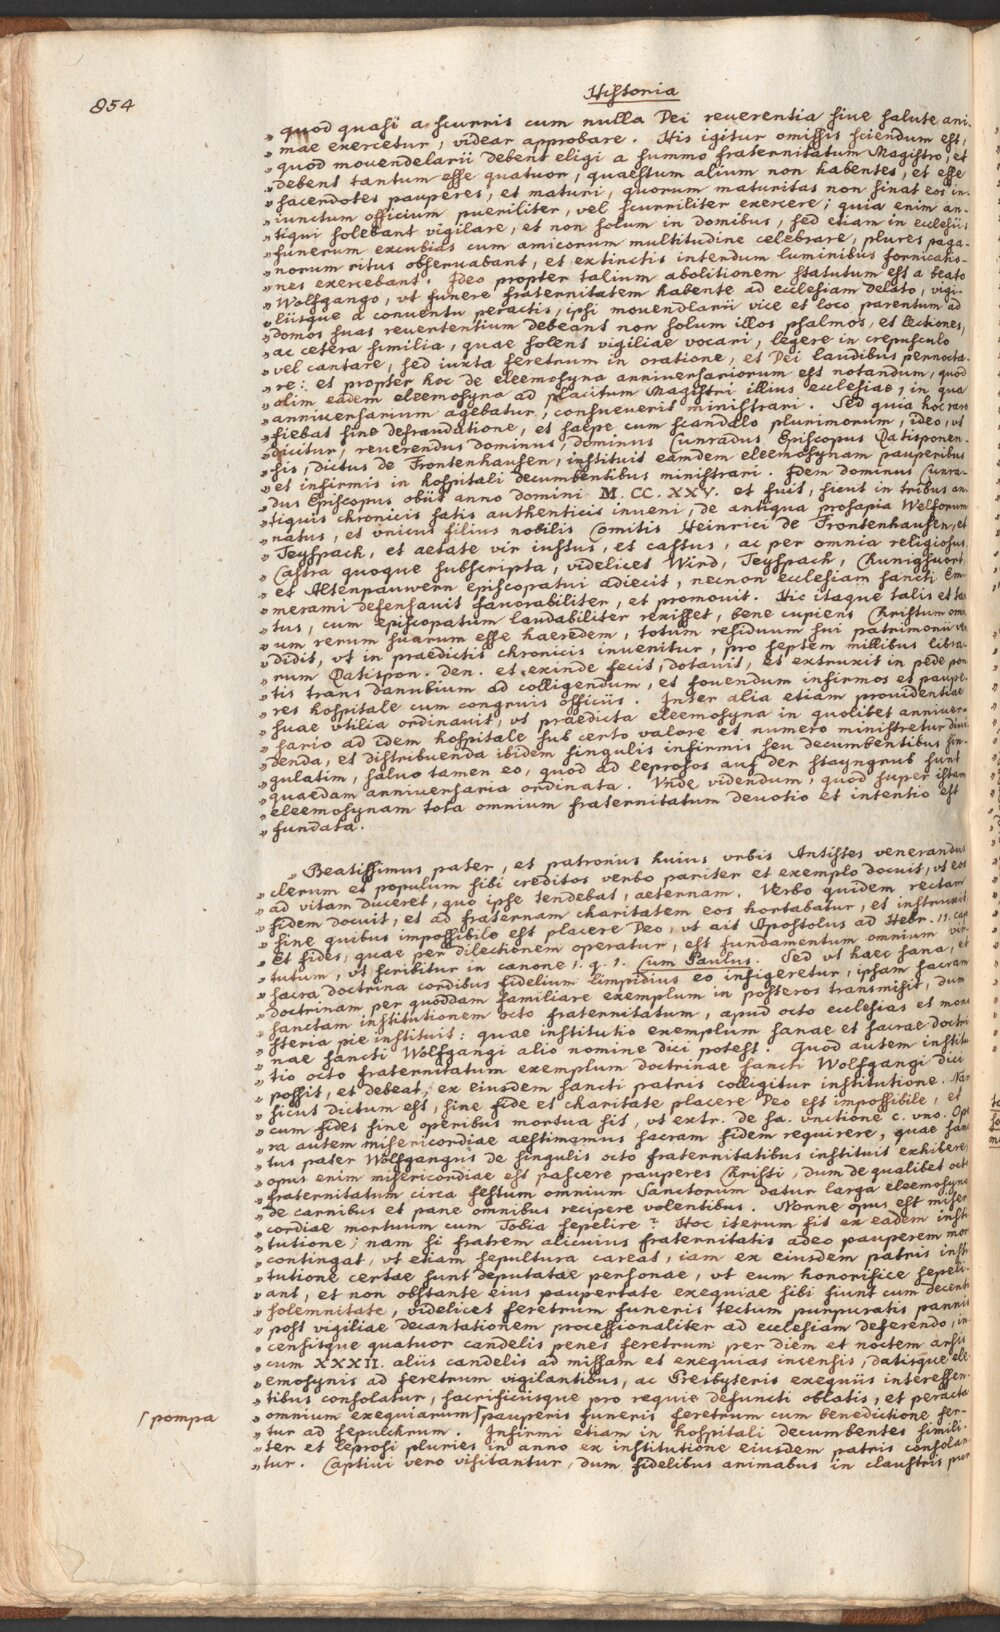 854
Historia
„ quod quasi a scurris cum nulla Dei reuerentia siue salute ani-
„ mae exercetur, videar approbare. His igitur omissis sciendum est,
„ quod mouendelarii debent eligi a summo fraternitatum Magistro, et
„ debent tantum esse quatuor, quaestum alium non habentes, et esse
„ sacerdotes pauperes, et maturi, quorum maturitas non sinat eos in-
„ iunctum officium pueriliter, vel scurriliter exercere; quia enim an-
„ tiqui solebant vigilare, et non solum in domibus, sed etiam in ecclesiis
„ funerum excubias cum amicorum multitudine celebrare, plures paga-
„ norum ritus obseruabant, et extinctis interdum luminibus fornicatio-
„ nes exercebant. Ideo propter talium abolitionem statutum est a beato
„ Wolfgango, vt funere fraternitatem habente ad ecclesiam delato, vigi-
„ liisque a conuentu peractis, ipsi mouendlarii vice et loco parentum ad
„ domos suas reuertentium debeant non solum illos psalmos, et lectiones,
„ ac cetera similia, quae solent vigiliae vocari, legere in crepusculo
„ vel cantare, sed iuxta feretrum in oratione, et Dei laudibus pernocta-
„ re: et propter hoc de eleemosyna anniuersariorum est notandum, quod
„ olim eadem eleemosyna ad placitum Magistri illius ecclesiae, in qua
„ anniuersarium agebatur, consueuerit ministrari. Sed quia hoc raro
„ fiebat sine defraudatione, et saepe cum scandalo plurimorum, ideo, vt
„ dicitur, reuerendus dominus, dominus Cunradus Episcopus Ratisponen-
„ sis, dictus de Frontenhausen, instituit eamdem eleemosynam pauperibus
„ et infirmis in hospitali decumbentibus ministrari. Idem dominus Cunra-
„ dus Episcopus obiit anno domini M. CC. XXV. et fuit, sicut in tribus an-
„ tiquis chronicis satis authenticis inueni, de antiqua prosapia Welforum
„ natus, et vnicus filius nobilis Comitis Heinrici de Frontenhausen, et
„ Teyspach, et aetate vir iustus, et castus, ac per omnia religiosus.
„ Castra quoque subscripta, videlicet Wird, Teyspach, Chunigswort
„ et Altenpauwern Episcopatui adiecit, necnon ecclesiam sancti Em-
„ merami defensauit fauorabiliter, et promouit. Hic itaque talis et tan-
„ tus, cum Episcopatum laudabiliter rexisset, bene cupiens Christum omni-
„ um rerum suarum esse haeredem, totum residuum sui patrimonii ven-
„ didit, vt in praedictis chronicis inuenitur, pro septem millibus libra-
„ rum Ratispon. den. et exinde fecit, dotauit, et extruxit in pede pon-
„ tis trans danubium ad colligendum, et fouendum infirmos et paupe-
„ res hospitale cum congruis officiis. Inter alia etiam prouidentiae
„ suae vtilia ordinauit, vt praedicta eleemosyna in quolibet anniuer-
„ sario ad idem hospitale sub certo valore et numero ministretur diui-
„ denda, et distribuenda ibidem singulis infirmis seu decumbentibus sin-
„ gulatim, saluo tamen eo, quod ad leprosos auf der stayngrub sunt
„ quaedam anniuersaria ordinata. Vnde videndum, quod super istam
„ eleemosynam tota omnium fraternitatum deuotio et intentio est
„ fundata.
„ Beatissimus pater, et patronus huius vrbis Antistes venerandus
„ clerum et populum sibi creditos verbo pariter et exemplo docuit, vt eos
„ ad vitam duceret, quo ipse tendebat, aeternam. Verbo quidem rectam
„ fidem docuit, et ad fraternam charitatem eos hortabatur, et instruxit
„ sine quibus impossibile est placere Deo, vt ait Apostolus ad Hebr. 11. cap.
„ Et fides, quae per dilectionem operatur, est fundamentum omnium vir-
„ tutum, vt scribitur in canone 1. q. 1. Cum Paulus. Sed vt haec sana, et
„ sacra doctrina cordibus fidelium limpidius eo infigeretur, ipsam sacram
„ doctrinam per quoddam familiare exemplum in posteros transmisit, dum
„ sanctam institutionem octo fraternitatum, apud octo ecclesias et mona-
„ steria pie instituit: quae institutio exemplum sanae et sacrae doctri-
„ nae sancti Wolfgangi alio nomine dici potest. Quod autem institu-
„ tio octo fraternitatum exemplum doctrinae sancti Wolfgangi dici
„ possit, et debeat, ex eiusdem sancti patris colligitur institutione. Nam
„ sicut dictum est, sine fide et charitate placere Deo est impossibile, et
„ cum fides sine operibus mortua sit, vt extr. de sa. vnctione c. vno. Ope-
„ ra autem misericordiae aestimamus sacram fidem requirere, quae san-
„ tus pater Wolfgangus de singulis octo fraternitatibus instituit exhibere,
„ opus enim misericordiae est pascere pauperes Christi, dum de qualibet octo
„ fraternitatum circa festum omnium Sanctorum datur larga eleemosyna
„ de carnibus et pane omnibus recipere volentibus. Nonne opus est miseri-
„ cordiae mortuum cum Tobia sepelire? Hoc iterum fit ex eadem insti-
„ tutione; nam si fratrem alicuius fraternitatis adeo pauperem mori
„ contingat, vt etiam sepultura careat, iam ex eiusdem patris insti-
„ tutione certae sunt deputatae personae, vt eum honorifice sepeli-
„ ant, et non obstante eius paupertate exequiae sibi fiunt cum decenti
„ solemnitate, videlicet feretrum funeris tectum purpuratis pannis
„ post vigiliae decantationem processionaliter ad ecclesiam deferendo, in-
„ censisque quatuor candelis penes feretrum per diem et noctem arsis
„ cum XXXII. aliis candelis ad missam et exequias incensis, datisque ele-
„ emosynis ad feretrum vigilantibus, ac Presbyteris exequiis interessen-
„ tibus consolatur, sacrificiisque pro requie defuncti oblatis, et peracta
„ omnium exequiarum ⌈ pauperis funeris feretrum cum benedictione fer-
⌈ pompa
„ tur ad sepulchrum. Infirmi etiam in hospitali decumbentes simili-
„ ter et leprosi pluries in anno ex institutione eiusdem patris consolan-
„ tur. Captiui vero visitantur, dum fidelibus animabus in claustris pur-